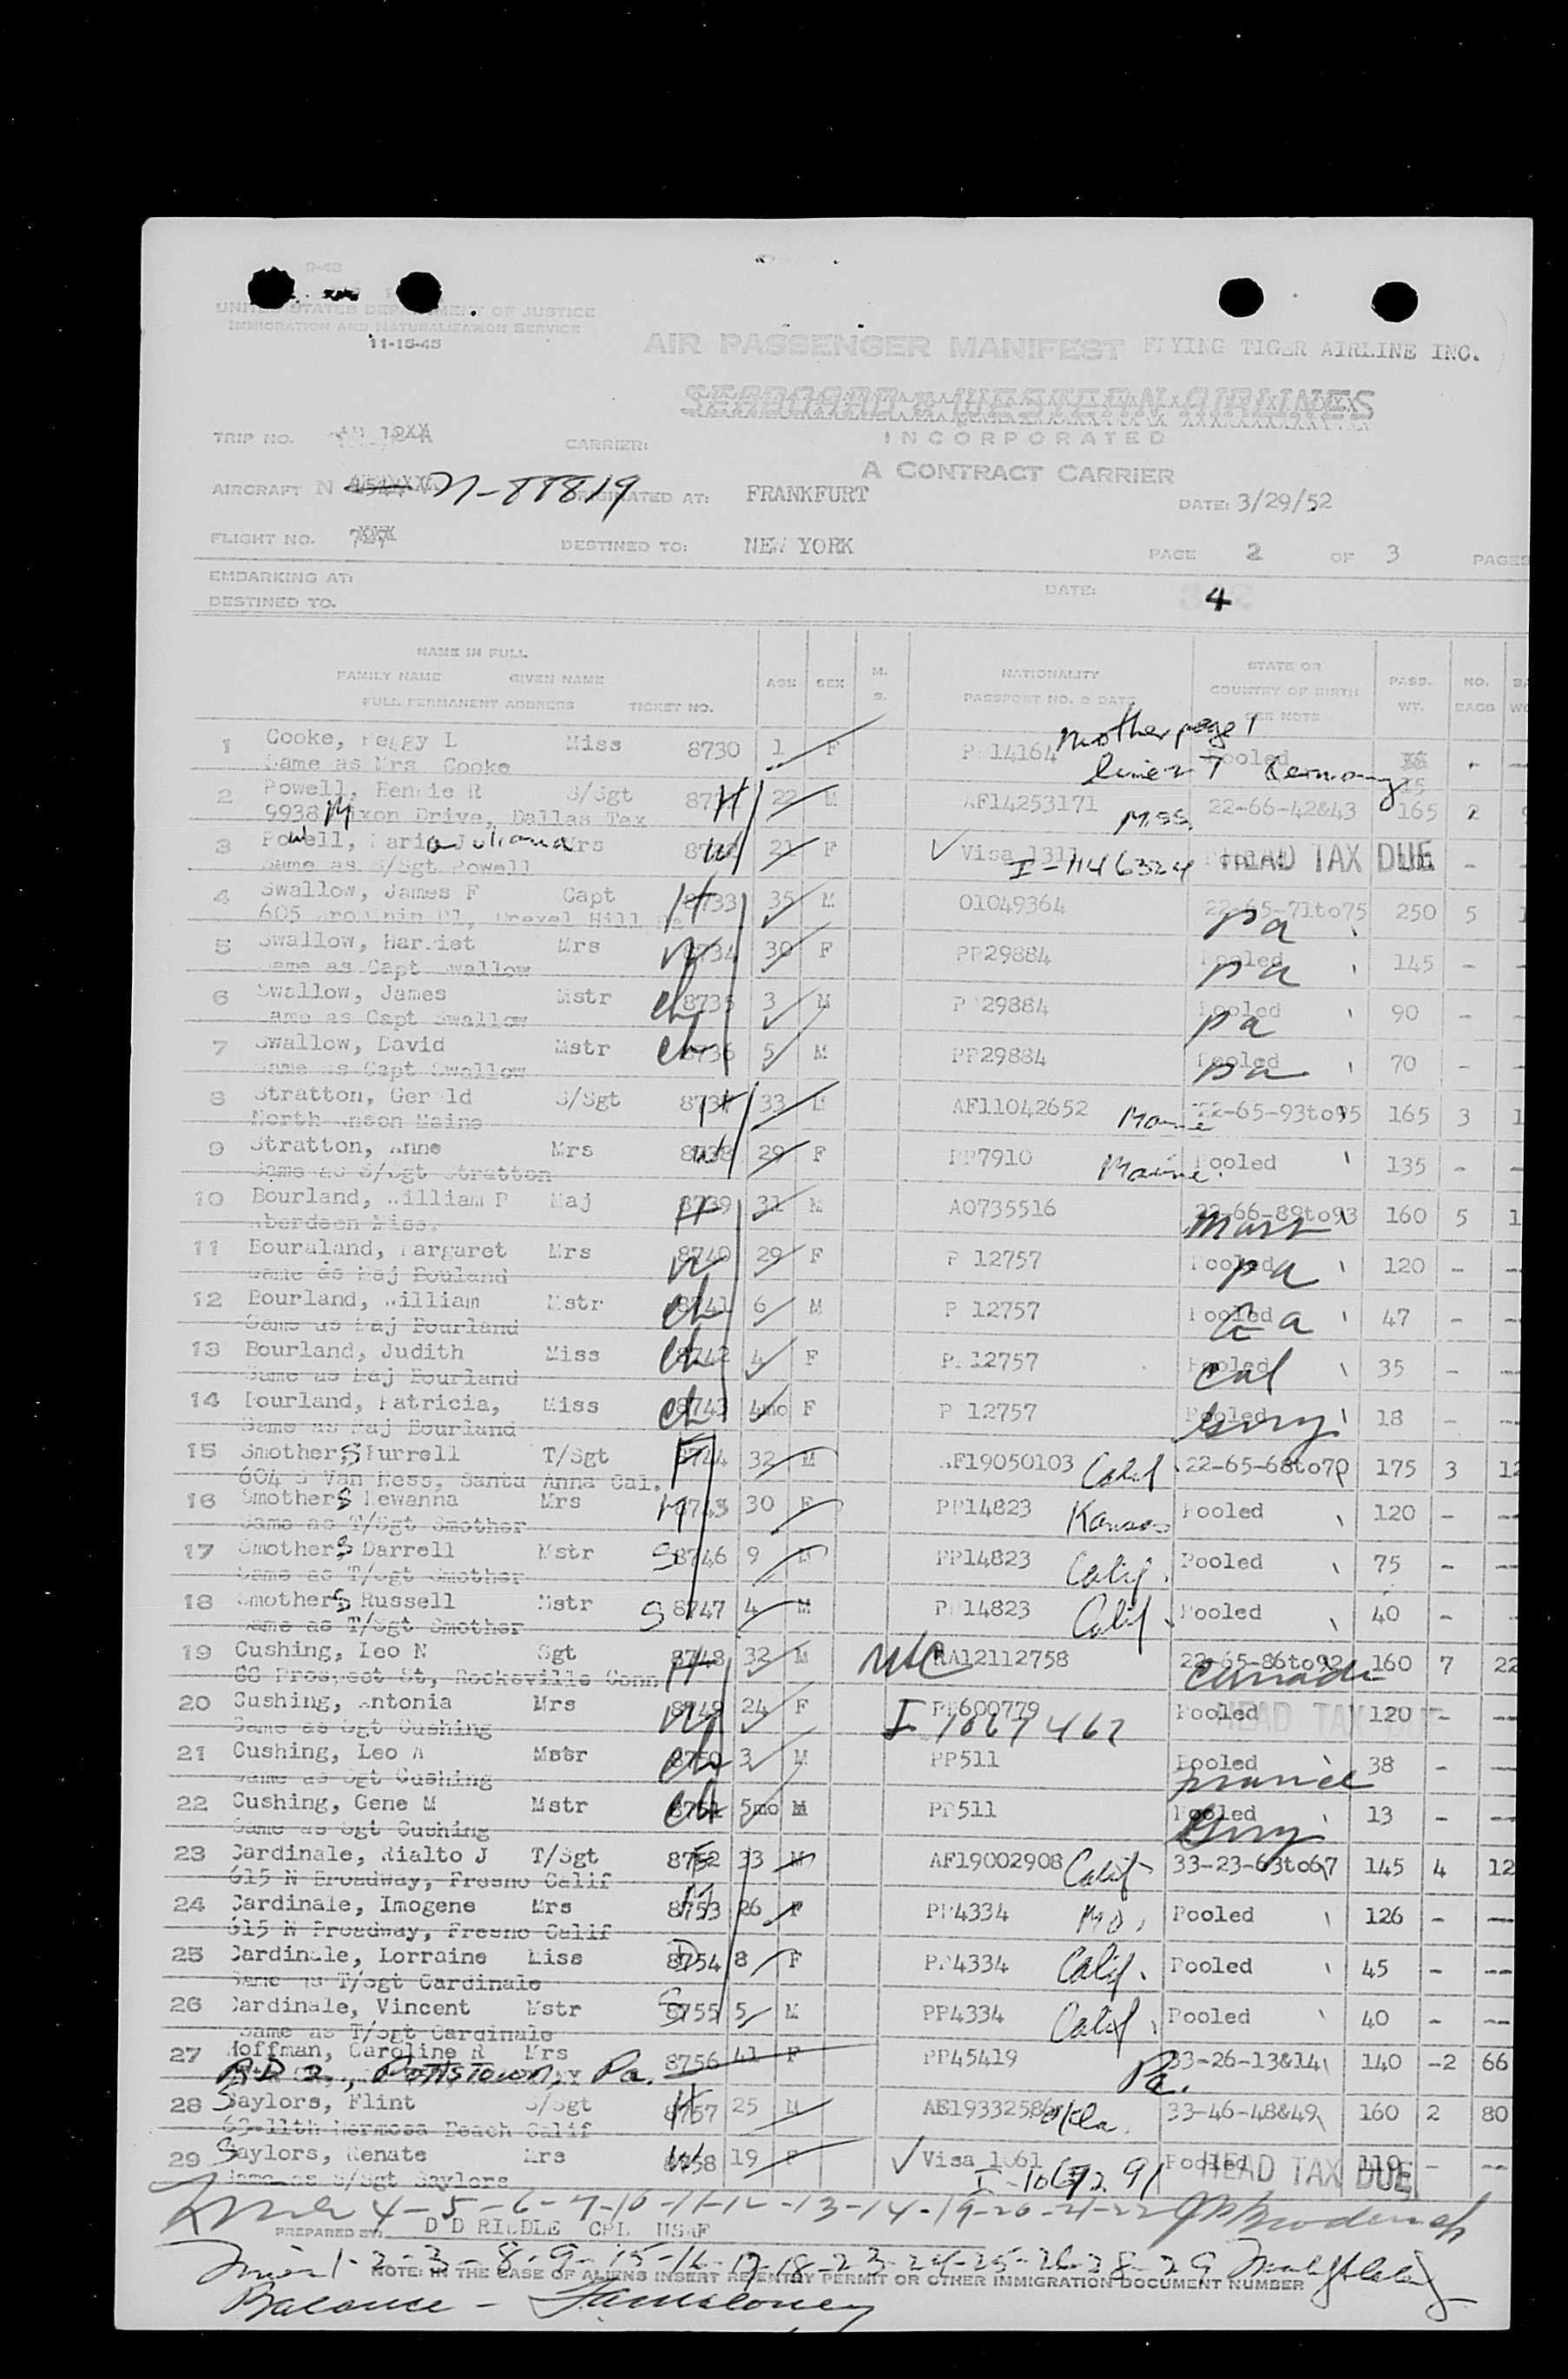 UNITED STATES DEPARTMENT OF JUSTICE
IMMIGRATION AND NATURALIZATION SERVICE
11-15-45
AIR PASSENGER MANIFEST FLYING TIGER AIRLINE INC.
SEABOARD & WESTERN AIRLINES
INCORPORATED
TRIP NO. CARRIER:
A CONTRACT CARRIER
AIRCRAFT N N-88819 ORIGINATED AT: FRANKFURT DATE: 3/29/52
FLIGHT NO. DESTINED TO: NEW YORK PAGE 2 OF 3 PAGES
EMBARKING AT: DATE:
DESTINED TO. 4
NAME IN FULL
FAMILY NAME GIVEN NAME AGE SEX M. S. NATIONALITY STATE OR PASS. NO.
FULL PERMANENT ADDRESS TICKET NO. PASSPORT NO. & DATE COUNTRY OF BIRTH WT. BAGS
SEE NOTE
mother page 1
1 Cooke, Peggy L Miss 8730 1 F PP14164 Pooled -
Same as Mrs Cooke Germany 15
2 Powell, Rennie R S/Sgt H 22 M AF14253171 Miss 22-66-42&43 165 2
9938 Mixon Drive, Dallas Tex
3 Powell, Maria Juliana Mrs W 21 F Visa 1311 HEAD TAX DUE -
Same as S/Sgt Powell I-446324
4 Swallow, James F Capt H 8733 35 M O1049364 22-65-71to75 250 5
605 Drexel Hill Pa Pa
5 Swallow, Harriet Mrs W 8734 30 F PP29884 Pooled Pa 145 -
Same as Capt Swallow
6 Swallow, James Mstr ch 8735 3 M PP29884 Pooled Pa 90 -
Same as Capt Swallow
7 Swallow, David Mstr ch 8736 5 M PP29884 Pooled Pa 70 -
Same as Capt Swallow
8 Stratton, Gerald S/Sgt 8737 H 33 M AF11042652 Maine 22-65-93to95 165 3
North Anson Maine
9 Stratton, Anne Mrs 8738 W 29 F PP7910 Maine Pooled 135 -
Same as S/Sgt Stratton
10 Bourland, William P Maj H 8739 31 M AO735516 22-66-89to93 160 5
Aberdeen Miss.
11 Bouraland, Margaret Mrs W 8740 29 F PP12757 Pooled Pa 120 -
Same as Maj Bouland
12 Bourland, William Mstr ch 8741 6 M PP12757 Pooled 47 -
Same as Maj Bourland
13 Bourland, Judith Miss ch 8742 4 F PP12757 Pooled Cal 35 -
Same as Maj Bourland
14 Bourland, Patricia, Miss ch 8743 4mo F PP12757 Pooled Gmy 18 -
Same as Maj Bourland
15 Smothers Turrell T/Sgt F 8744 32 M AF19050103 Calif 22-65-68to70 175 3 12
604 S Van Ness, Santa Anna Cal.
16 Smothers Newanna Mrs M 8745 30 F PP14823 Kansas Pooled 120 -
Same as T/Sgt Smother
17 Smothers Darrell Mstr S 8746 9 M PP14823 Calif. Pooled 75 -
Same as T/Sgt Smother
18 Smothers Russell Mstr S 8747 4 M PP14823 Calif. Pooled 40 -
Same as T/Sgt Smother
19 Cushing, Leo N Sgt H 8748 32 M RA12112758 22-65-86to92 160 7 22
68 Prospect St, Rocksville Conn Canada
20 Cushing, Antonia Mrs W 8749 24 F PP600779 Pooled HEAD TAX 120 -
Same as Sgt Cushing I 1867462
21 Cushing, Leo A Mstr ch 8750 3 M PP511 Pooled 38 -
Same as Sgt Cushing France
22 Cushing, Gene M Mstr ch 8751 5mo M PP511 Pooled 13 -
Same as Sgt Cushing Gmy
23 Cardinale, Rialto J T/Sgt 8752 F 33 M AF19002908 Calif 33-23-63to67 145 4 12
615 N Broadway, Fresno Calif
24 Cardinale, Imogene Mrs 8753 M 26 F PP4334 Mo. Pooled 126 -
615 N Broadway, Fresno Calif
25 Cardinale, Lorraine Miss 8754 D 8 F PP4334 Calif. Pooled 45 -
Same as T/Sgt Cardinale
26 Cardinale, Vincent Mstr S 8755 5 M PP4334 Calif. Pooled 40 -
Same as T/Sgt Cardinale
27 Hoffman, Caroline R Mrs 8756 41 F PP45419 Pa. 33-26-13&14 140 -2 66
RD 2, Pottstown, Pa.
28 Saylors, Flint S/Sgt H 8757 25 M AF19332586 Okla. 33-46-48&49 160 2 80
69-11th Hermosa Beach Calif
29 Saylors, Renate Mrs W 8758 19 F Visa 1061 Pooled HEAD TAX DUE 110 -
Same as S/Sgt Saylors
4-5-6-7-10-11-12-13-14-19-20-21-22
PREPARED BY: D D RIDDLE CPL USAF
1-2-3-8-9-15-16-17-18-23-24-25-26-28-29
NOTE: IN THE CASE OF ALIENS INSERT RE-ENTRY PERMIT OR OTHER IMMIGRATION DOCUMENT NUMBER
Balance -